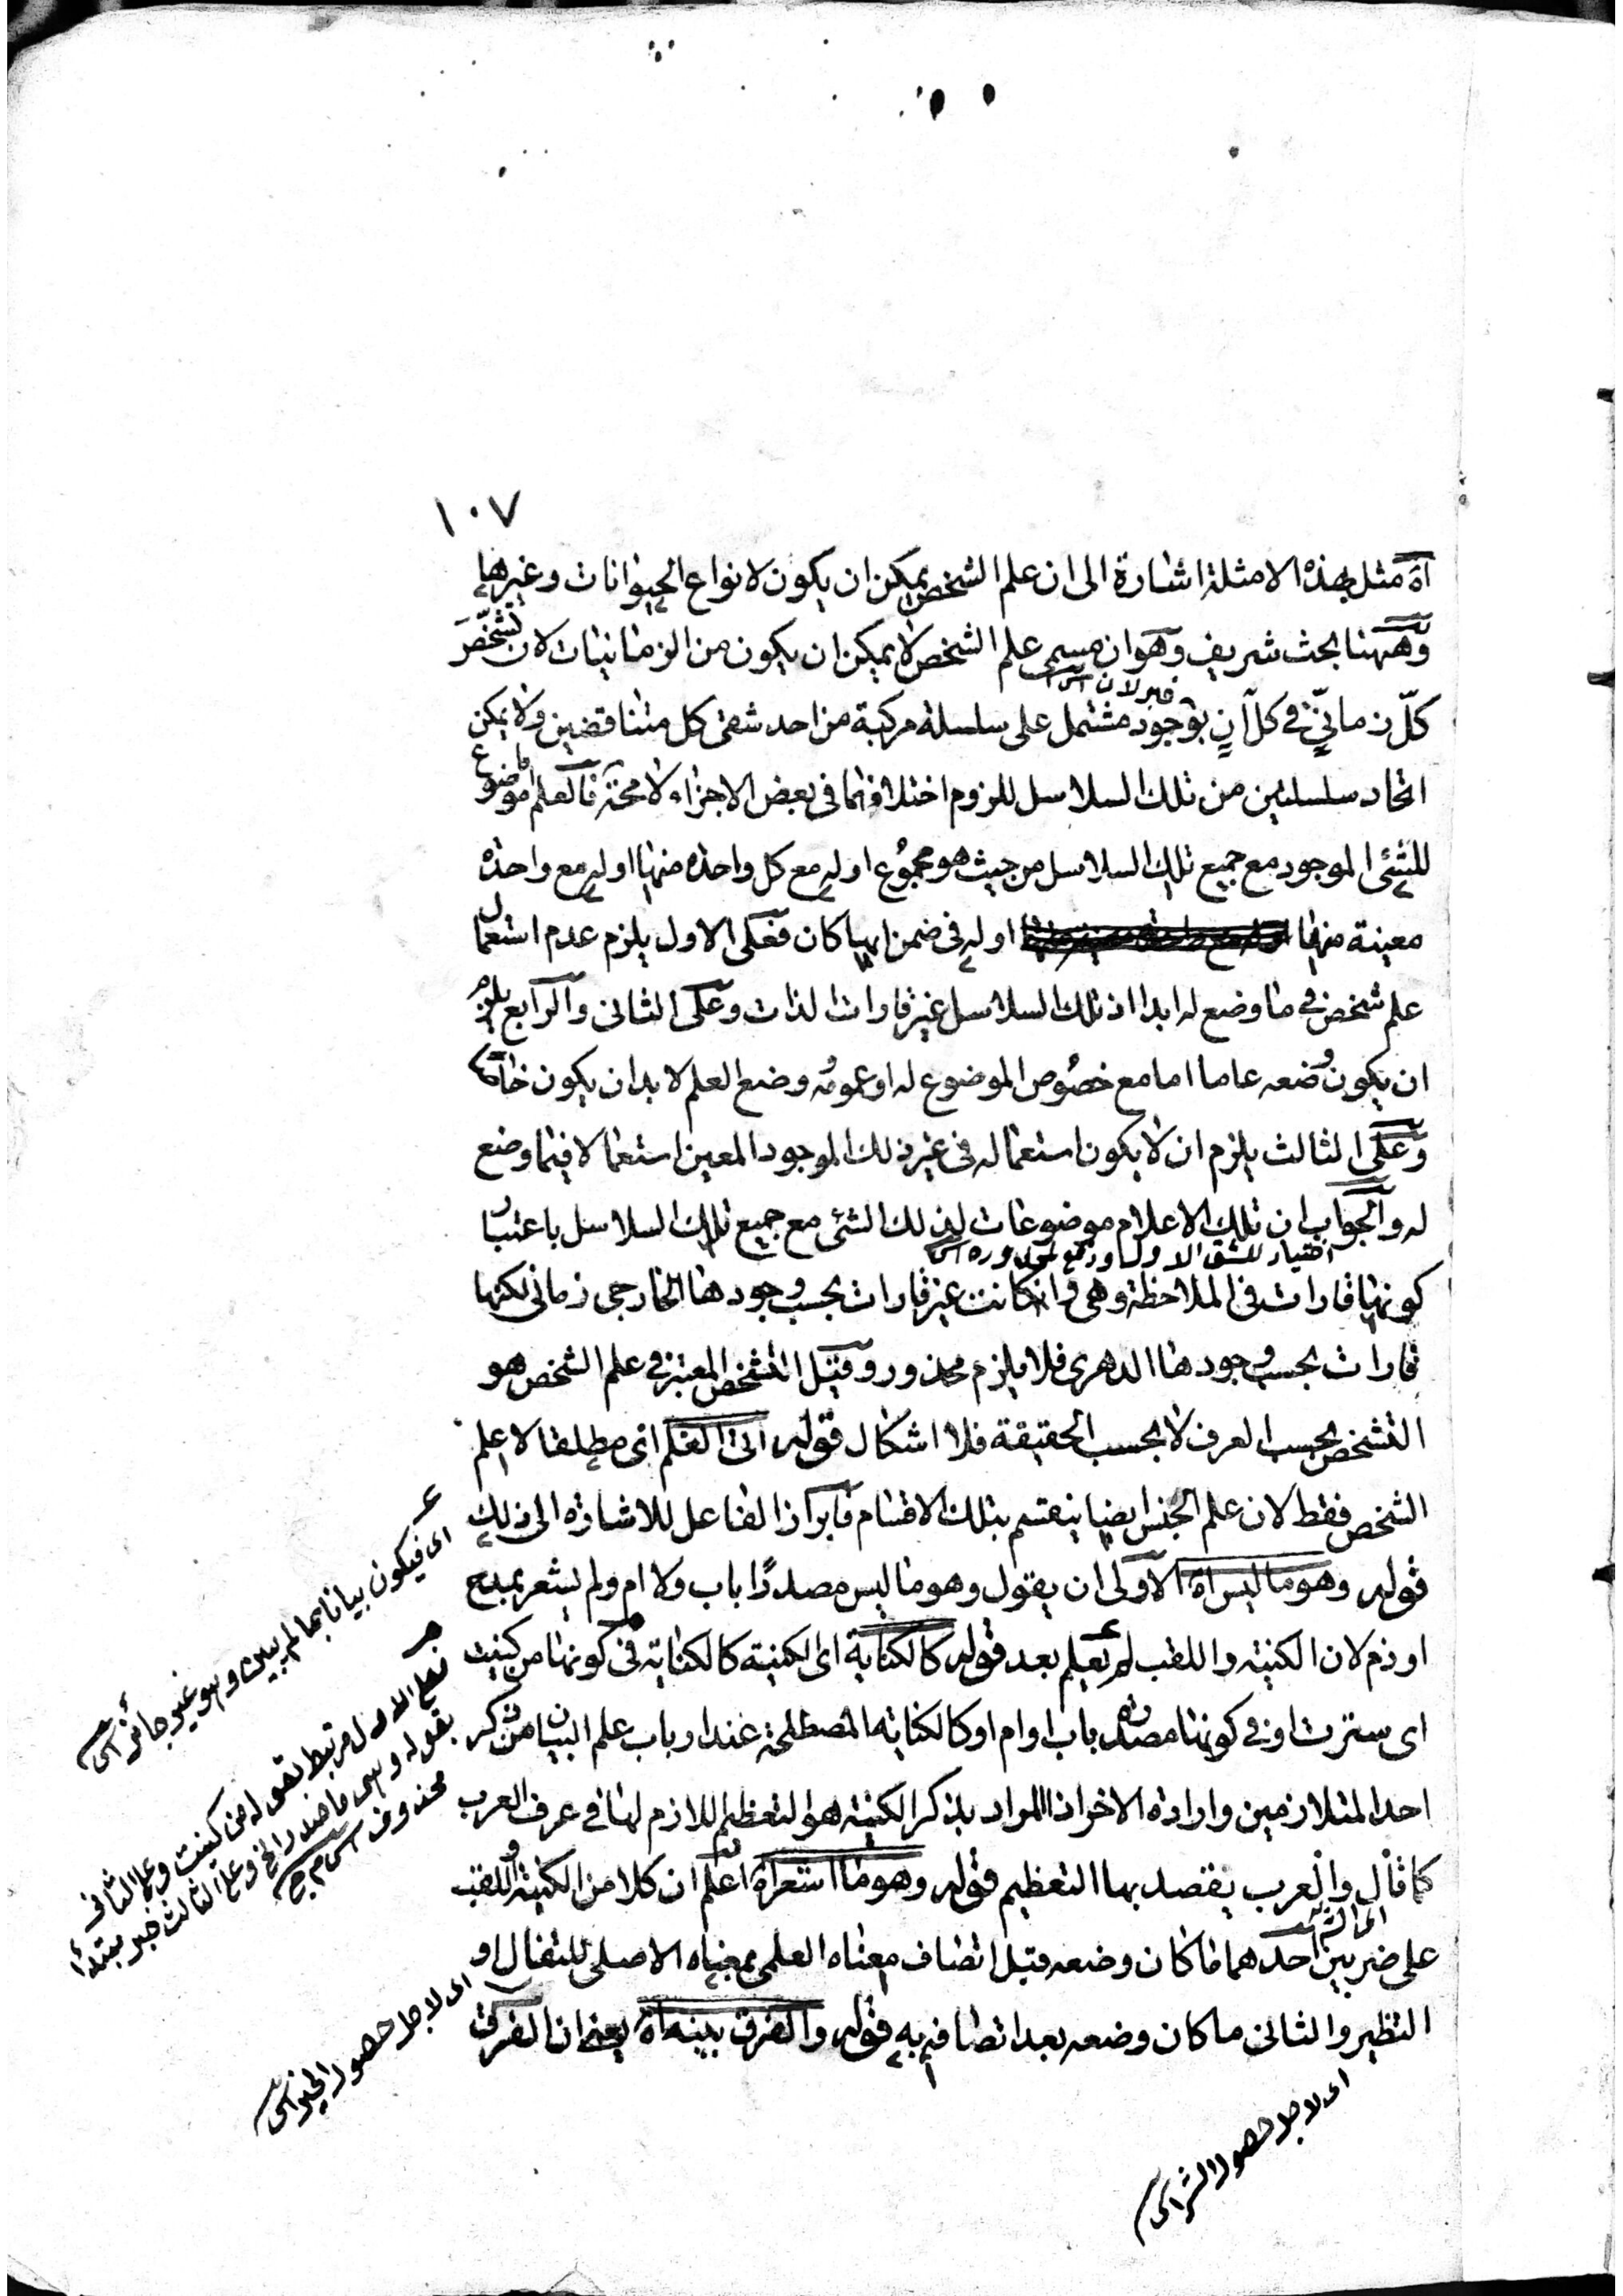 ١٠٧
آه مثل بهذه الامثلة اشارة الى ان علم الشخص يمكن ان يكون لانواع الحيوانات وغيرها
وههنا بحث شريف وهو ان مسمى علم الشخص لا يمكن ان يكون من الزمانيات لان تشخص
كلّ زمانيّ في كل آنٍ بوجود مشتمل على سلسلة مركبة من احد شقى كل متناقضين ولا يمكن
اتحاد سلسلتين من تلك السلاسل للزوم اختلافهما في بعض الاجزاء لا محة فالعلم اما موضوع
للشئ الموجود مع جميع تلك السلاسل من حيث هو مجموع او له مع كل واحدة منها او له مع واحدة
معينة منها او له في ضمن ايها كان فعلى الاول يلزم عدم استعمال
علم شخص في ما وضع له ابدا اذ تلك السلاسل غير قارات الذات وعلى الثاني والرابع يلزم
ان يكون وضعه عاما اما مع خصوص الموضوع له او عمومه وضع العلم لا بد ان يكون خاصا
وعلى الثالث يلزم ان لا يكون استعماله في غير ذلك الموجود المعين استعمالا فيما وضع
له والجواب ان تلك الاعلام موضوعات لذلك الشئ مع جميع تلك السلاسل باعتبار
اختيار للشق الاول
كونها قارات في الملاحظة وهي وان كانت غير قارات بحسب وجودها الخارجي زماني لكنها
قارات بحسب وجودها الدهري فلا يلزم محذور وقيل التشخص المعتبر في علم الشخص هو
التشخص بحسب العرف لا بحسب الحقيقة فلا اشكال قوله اى العلم اى مطلقا لا علم
الشخص فقط لان علم الجنس ايضا ينقسم بتلك الاقسام فابراز الفاعل للاشارة الى ذلك
قوله وهو ما ليس اه الاولى ان يقول وهو ما ليس مصدرًا باب ولا ام ولم يشعر بمدح
او ذم لان الكنية واللقب لم يعلم بعد قوله كالكناية اى الكنية كالكناية في كونها من كنيت
اى سترت او في كونها مصدرة باب او ام او كالكناية المصطلحة عند ارباب علم البيان من ذكر
احد المتلازمين وارادة الاخر اذ المراد بذكر الكنية هو التعظيم اللازم لها في عرف العرب
كما قال والعرب يقصد بها التعظيم قوله وهو ما اشعر اه اعلم ان كلا من الكنية واللقب
على ضربين احدهما ما كان وضعه قبل اتصاف معناه العلمى بمعناه الاصلى للتفال او
التطير والثاني ما كان وضعه بعد اتصافه به قوله والفرق بينه اه يعنى ان الفرق
اى فيكون بيانا بما لم يبين وهو غير جائز
فعلى الاول مرتبط بقوله من كنيت وعلى الثاني
بقوله وهي ما صدر الخ وعلى الثالث خبر مبتدأ
محذوف
اى لاجل حصول الخير
اى لاجل حصول الشر